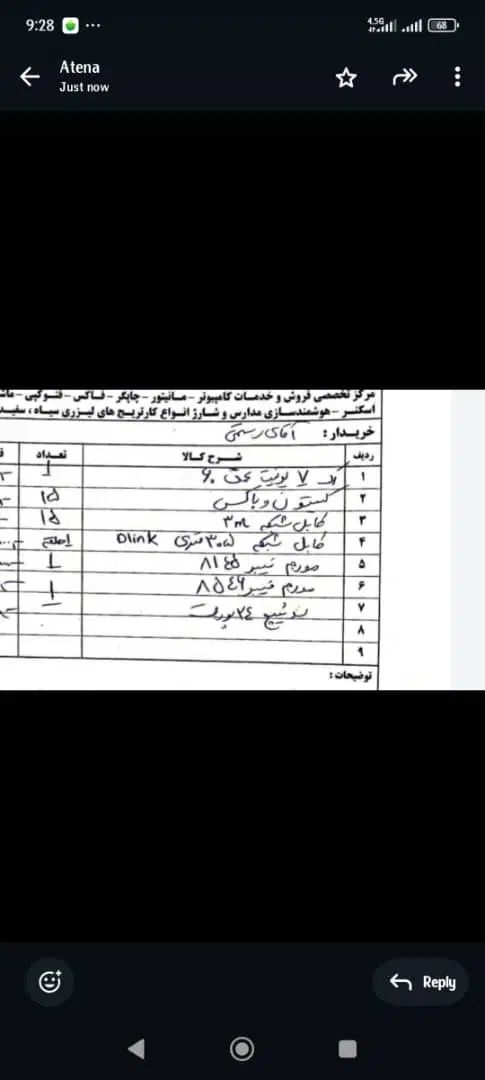 9:28
4.5G
68
Atena
Just now
مرکز تخصصی فروش و خدمات کامپیوتر - مانیتور - چاپگر - فاکس - فتوکپی - ماش
اسکنر - هوشمندسازی مدارس و شارژ انواع کارتریج های لیزری سیاه ، سفید
خریدار : آقای رستمی
ردیف شرح کالا تعداد ق
۱ رک ۷ یونیت عمق ۶۰ ۱
۲ کیستون و باکس ۱۵
۳ کابل شبکه ۳m ۱۵
۴ کابل شبکه ۳۰۵ متری Dlink
۵ مودم فیبر ۸۱۴۵ ۱
۶ مودم فیبر ۸۵۴۶ ۱
۷ سوئیچ ۲۴ پورت
۸
۹
توضیحات :
Reply